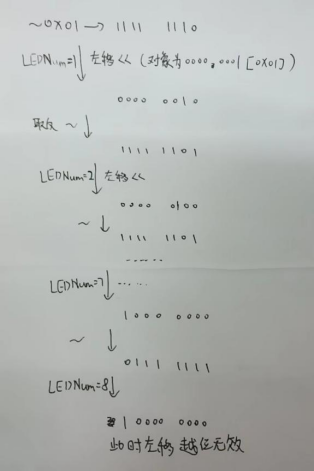 ~0x01 → 1111 1110
LEDNum=1 左移<< (对象为0000,0001 [0x01])
0000 0010
取反 ~
1111 1101
LEDNum=2 左移<<
0000 0100
~
1111 1101
......
LEDNum=7 ......
1000 0000
~
0111 1111
LEDNum=8
1 0000 0000
此时左移 越位无效